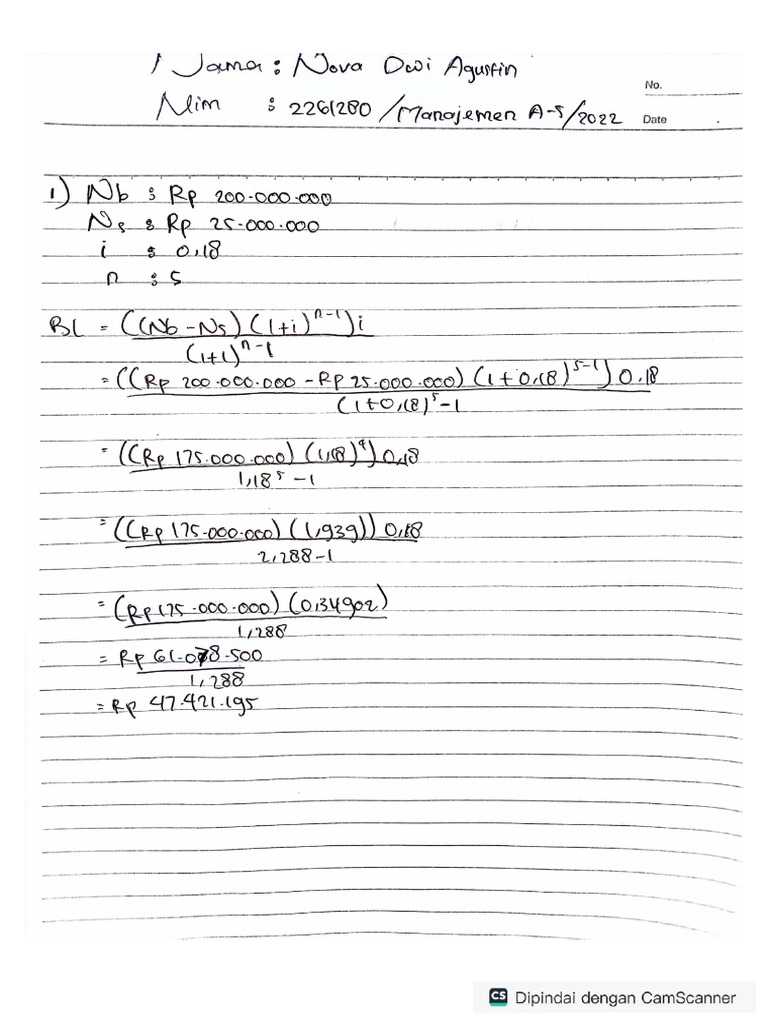 Nama : Nova Dwi Agustin
No.
Nim : 2261280 / Manajemen A-5/2022
Date
1) Nb : Rp 200.000.000
Ns : Rp 25.000.000
i : 0,18
n : 5
BL = ((Nb - Ns) (1+i)^n-1) i
(1+i)^n-1
= ((Rp 200.000.000 - Rp 25.000.000) (1+0,18)^5-1) 0.18
(1+0,18)^5-1
= ((Rp 175.000.000) (1,18)^4) 0,18
1,18^5 - 1
= ((Rp 175.000.000) (1,939)) 0,18
2,288-1
= (Rp 175.000.000) (0,34902)
1,288
= Rp 61.078.500
1,288
= Rp 47.421.195
CS Dipindai dengan CamScanner